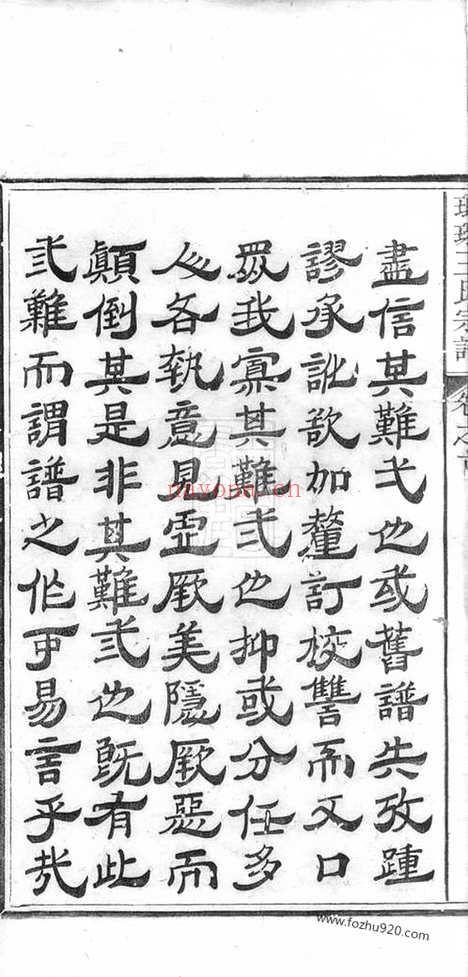 王氏宗譜 卷之首
盡信其難弌也或舊譜失攷踵
謬承訛欲加釐訂校讐而又口
眾我寡其難弍也抑或分任多
人各執意見虛厥美隱厥惡而
顛倒其是非其難弎也既有此
弎難而謂譜之作可易言乎哉
nayona.cn
www.fozhu920.com